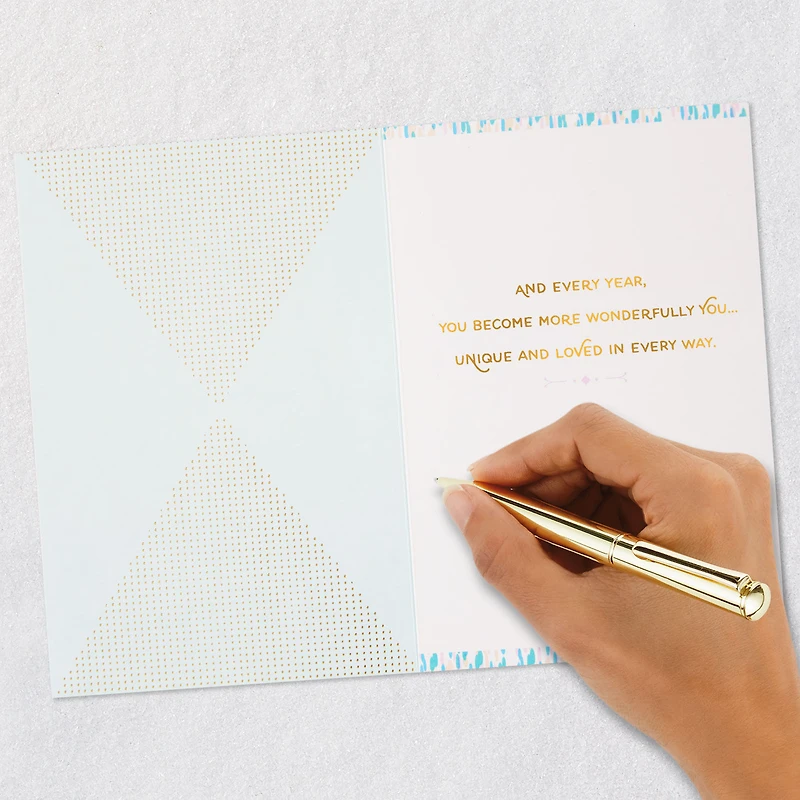 AND EVERY YEAR,
YOU BECOME MORE WONDERFULLY YOU...
UNIQUE AND LOVED IN EVERY WAY.